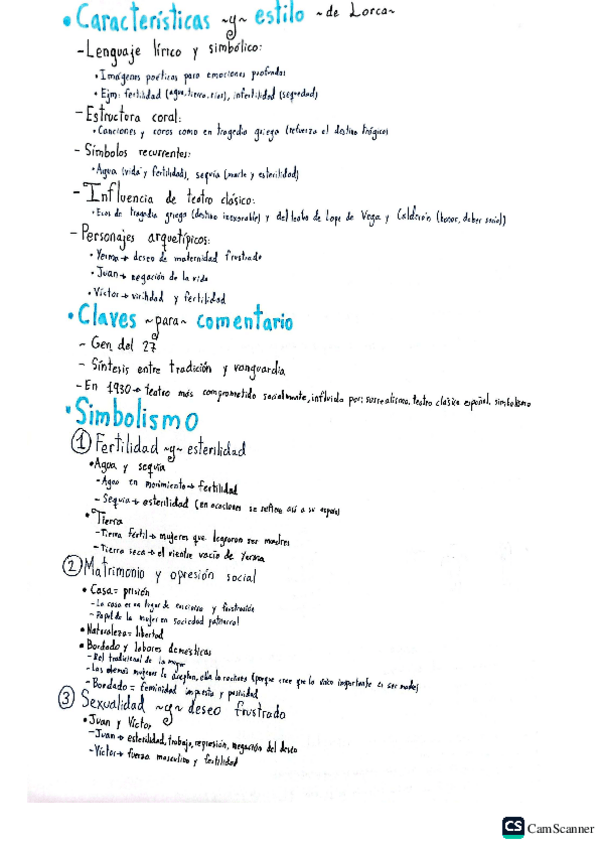 • Características ~y~ estilo ~de Lorca~
- Lenguaje lírico y simbólico:
• Imágenes poéticas para emociones profundas
• Ejm: fertilidad (agua, tierra, ríos), infertilidad (sequedad)
- Estructura coral:
• Canciones y coros como en tragedia griega (refuerza el destino trágico)
- Símbolos recurrentes:
• Agua (vida y fertilidad), sequía (muerte y esterilidad)
- Influencia de teatro clásico:
• Ecos de tragedia griega (destino inexorable) y del teatro de Lope de Vega y Calderón (honor, deber social)
- Personajes arquetípicos:
• Yerma → deseo de maternidad frustrado
• Juan → negación de la vida
• Víctor → virilidad y fertilidad
• Claves ~para~ comentario
- Gen del 27
- Síntesis entre tradición y vanguardia
- En 1930 → teatro más comprometido socialmente, influido por: surrealismo, teatro clásico español, simbolismo
• Simbolismo
① Fertilidad ~y~ esterilidad
• Agua y sequía
- Agua en movimiento → fertilidad
- Sequía → esterilidad (en ocasiones se refleja así a su esposo)
• Tierra
- Tierra fértil → mujeres que lograron ser madres
- Tierra seca → el vientre vacío de Yerma
② Matrimonio y opresión social
• Casa = prisión
- La casa es un lugar de encierro y frustración
- Papel de la mujer en sociedad patriarcal
• Naturaleza = libertad
• Bordado y labores domésticas
- Rol tradicional de la mujer
- Las demás mujeres lo aceptan, ella lo rechaza (porque cree que lo único importante es ser madre)
- Bordado = feminidad impuesta y pasividad
③ Sexualidad ~y~ deseo frustrado
• Juan y Víctor
- Juan → esterilidad, trabajo, represión, negación del deseo
- Víctor → fuerza masculina y fertilidad
CS CamScanner